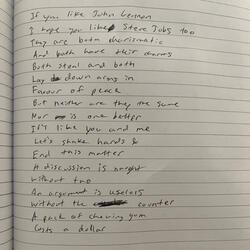 If you like John Lennon
I hope you like Steve Jobs too
They are both charismatic
And both have their charms
Both steal and both
Lay down along in
Favour of peace
But neither are they the same
Nor is one better
It's like you and me
Let's shake hands &
End this matter
A discussion is naught
Without two
An argument is useless
Without the counter
A pack of chewing gum
Costs a dollar